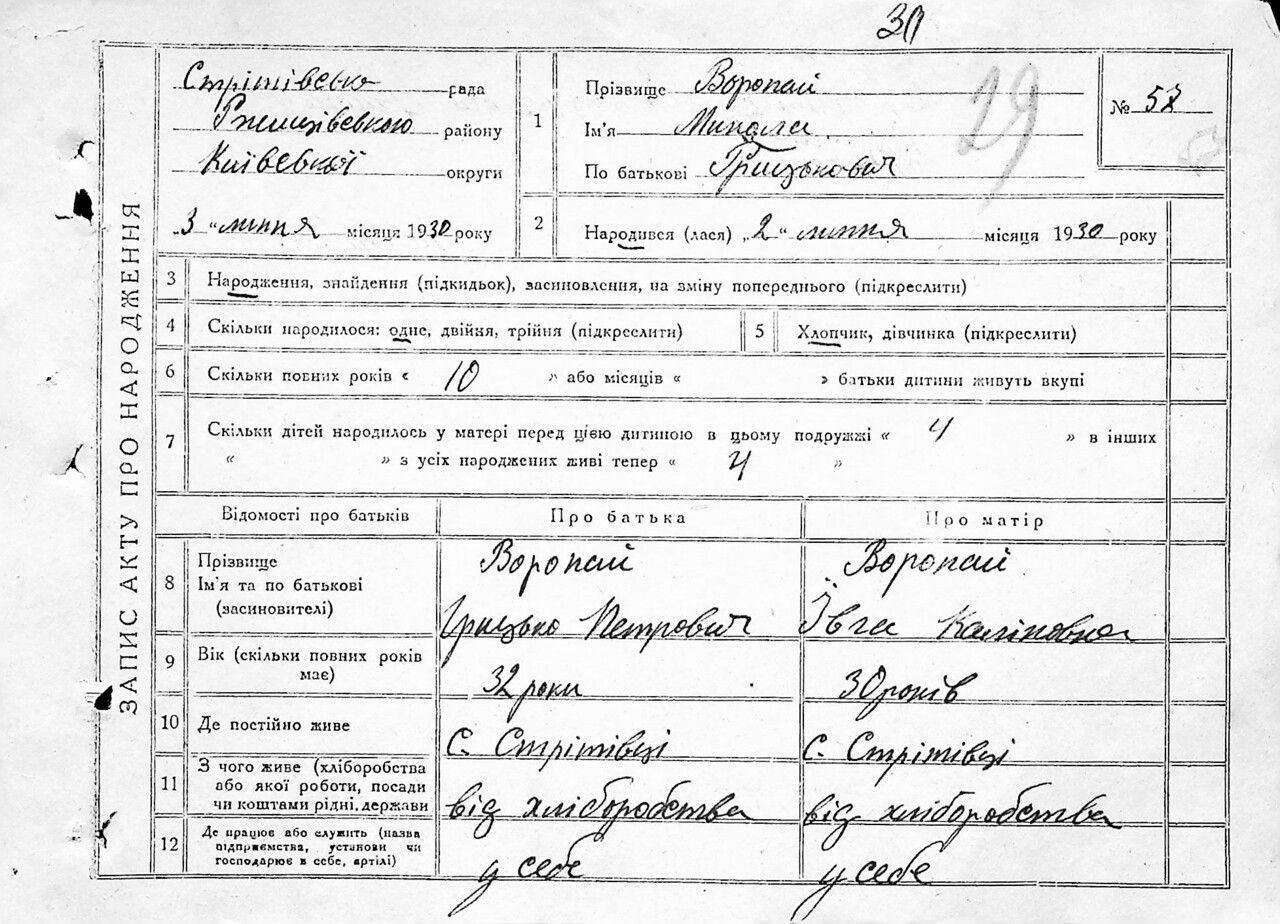 30
29
ЗАПИС АКТУ ПРО НАРОДЖЕННЯ
Стрітівська рада
Ржищівського району
Київської округи
„3“ липня місяця 1930 року
1
Прізвище Воропай
Ім'я Микола
По батькові Грицькович
№ 57
2
Народився (лася) „2“ липня місяця 1930 року
3 Народження, знайдення (підкидьок), засиновлення, на зміну попереднього (підкреслити)
4 Скільки народилося: одне, двійня, трійня (підкреслити)
5 Хлопчик, дівчинка (підкреслити)
6 Скільки повних років « 10 » або місяців « » батьки дитини живуть вкупі
7 Скільки дітей народилось у матері перед цією дитиною в цьому подружжі « 4 » в інших
« » з усіх народжених живі тепер « 4 »
Відомості про батьків Про батька Про матір
8 Прізвище Воропай Воропай
Ім'я та по батькові
(засиновителі) Грицько Петрович Ївга Каліновна
9 Вік (скільки повних років
має) 32 роки 30 років
10 Де постійно живе с. Стрітівці с. Стрітівці
11 З чого живе (хліборобства
або якої роботи, посади
чи коштами рідні, держави від хліборобства від хліборобства
12 Де працює або служить (назва
підприємства, установи чи
господарює в себе, артілі) у себе у себе